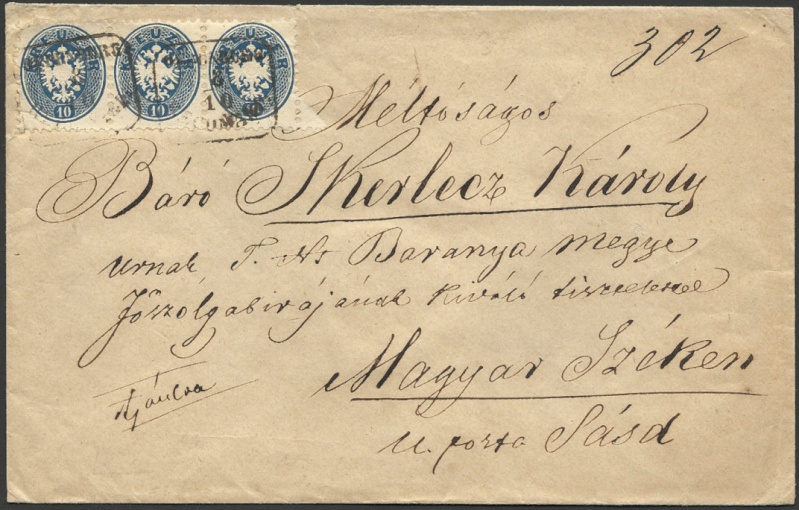 302
KREUZER KREUZER KREUZER
10 10 10
Méltóságos
Báró Skerlecz Károly
urnak T. Ns Baranya megye
Főszolgabirájának kiváló tisztelettel
Magyar Széken
u. posta Sásd
Ajánlva